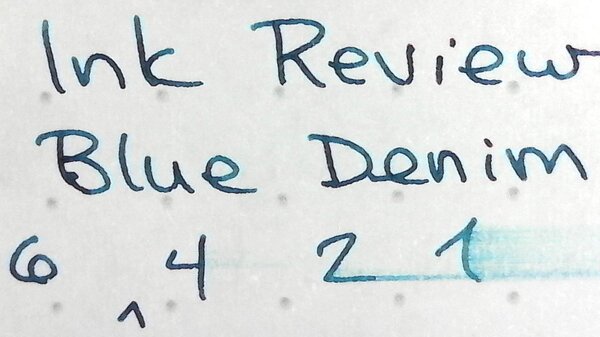 Ink Review
Blue Denim
6 4 2 1